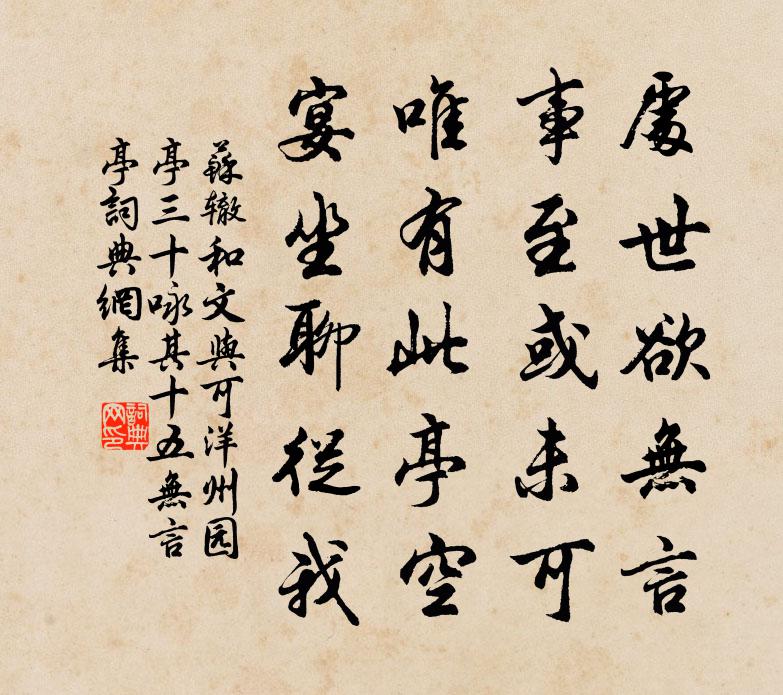 處世欲無言
事至或未可
唯有此亭空
宴坐聊從我
蘇辙和文與可洋州园
亭三十咏其十五無言
亭詞典網集
詞典网印